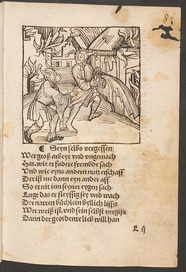 ¶ Seyn selbs vergessen
Wer groß arbeyt und ungemach
Hat wie er fudere frembde sach
Und wie eyns andern nutz
Der ist me dann eyn ander aff
So er nit inn seyner eygen sach
Luge das er fleyssig sey und wach
Der narren büchlein byllich lißt
Wer weiß ist und sein selbst vergißt
Dann der geordente lieb will han